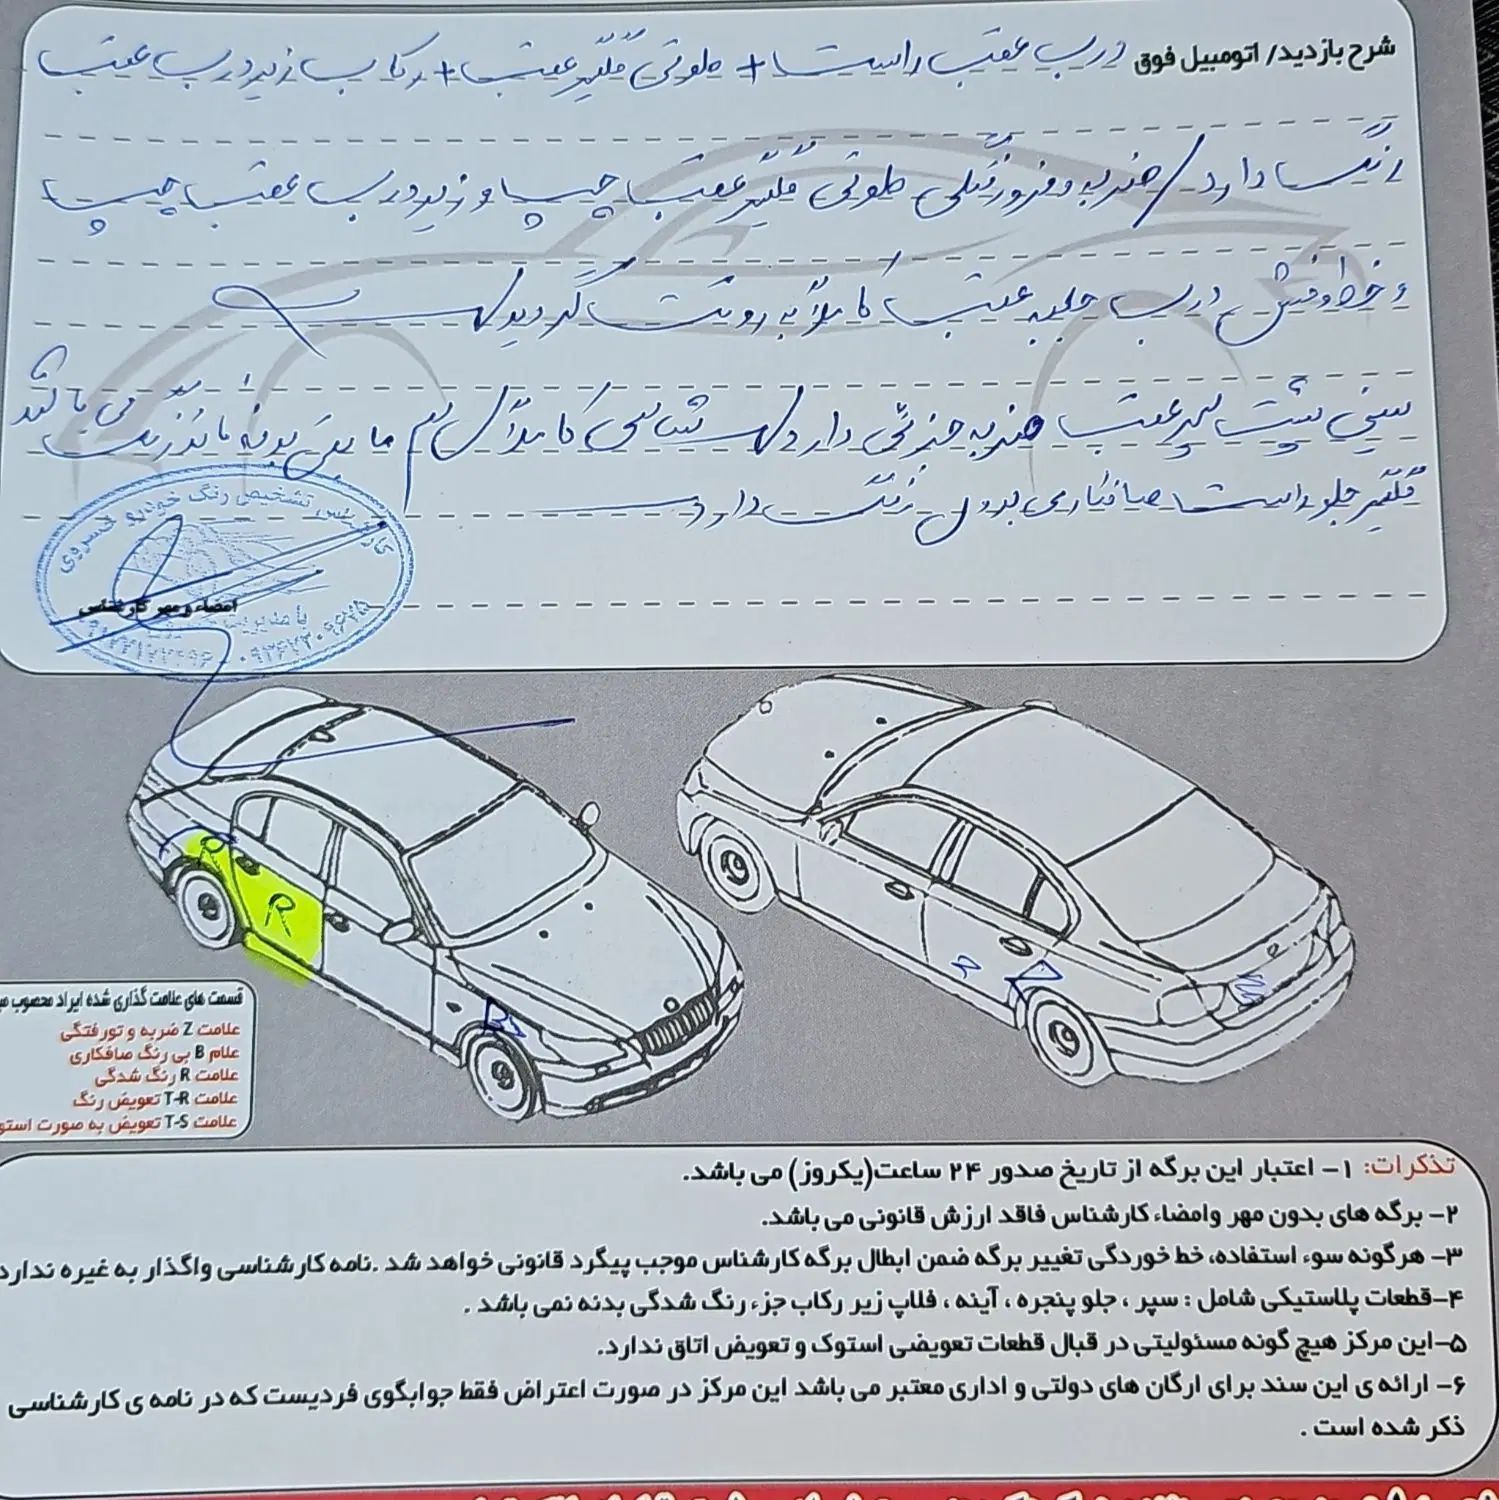 شرح بازدید/ اتومبیل فوق درب عقب راست + جلوئی گلگیر عقب + رکاب زیر درب عقب
رنگ دارد / ضربه و فرورفتگی جلوئی گلگیر عقب چپ و زیر درب عقب چپ
و خط و خش درب جلبه عقب کاملاً به رویت گردید
سینی پشت سپر عقب ضربه جزئی دارد شاسی کاملاً سالم مابقی بدنه بدون رنگ می باشد
گلگیر جلو راست صافکاری بدون رنگ دارد
کارشناس تشخیص رنگ خودرو خسروی
امضاء و مهر کارشناس
با مدیریت
R
R
Z
Z
قسمت های علامت گذاری شده ایراد محصوب می
علامت Z ضربه و تورفتگی
علام B بی رنگ صافکاری
علامت R رنگ شدگی
علامت T-R تعویض رنگ
علامت T-S تعویض به صورت استو
تذکرات: ۱- اعتبار این برگه از تاریخ صدور ۲۴ ساعت(یکروز) می باشد.
۲- برگه های بدون مهر وامضاء کارشناس فاقد ارزش قانونی می باشد.
۳- هرگونه سوء استفاده، خط خوردگی تغییر برگه ضمن ابطال برگه کارشناس موجب پیگرد قانونی خواهد شد .نامه کارشناسی واگذار به غیره ندارد
۴-قطعات پلاستیکی شامل : سپر ، جلو پنجره ، آینه ، فلاپ زیر رکاب جزء رنگ شدگی بدنه نمی باشد .
۵-این مرکز هیچ گونه مسئولیتی در قبال قطعات تعویضی استوک و تعویض اتاق ندارد.
۶- ارائه ی این سند برای ارگان های دولتی و اداری معتبر می باشد این مرکز در صورت اعتراض فقط جوابگوی فردیست که در نامه ی کارشناسی
ذکر شده است .